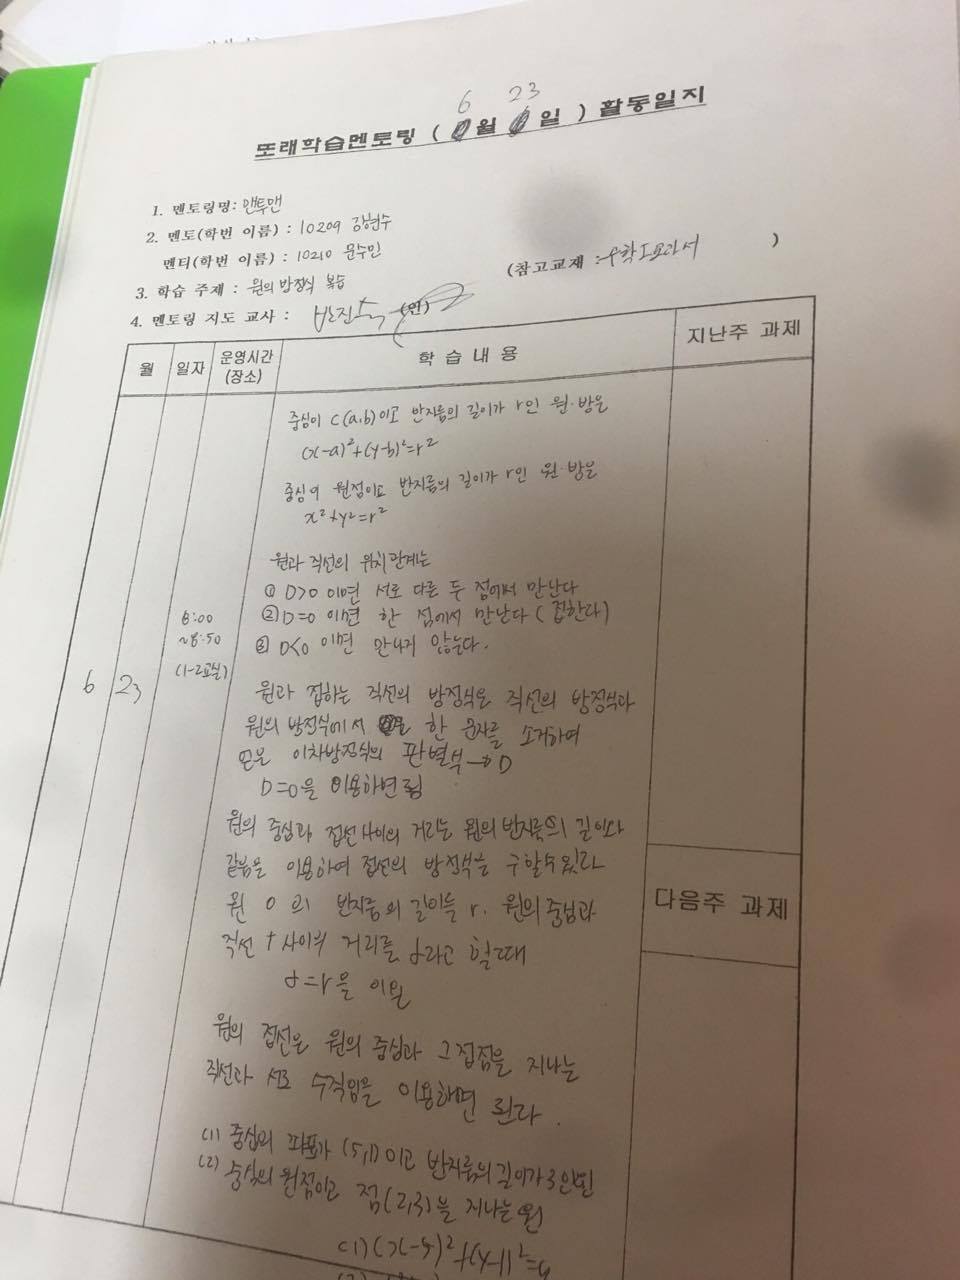 6 23
또래학습멘토링 ( 월 일 ) 활동일지
1. 멘토링명: 맨투맨
2. 멘토(학번 이름) : 10209 강현수
멘티(학번 이름) : 10210 문수민
(참고교재 : 수학교과서 )
3. 학습 주제 : 원의 방정식 복습
4. 멘토링 지도 교사 : (인)
월 일자 운영시간 학 습 내 용 지난주 과제
(장소)
중심이 C(a,b)이고 반지름의 길이가 r인 원·방은
(x-a)²+(y-b)²=r²
중심이 원점이고 반지름의 길이가 r인 원·방은
x²+y²=r²
원과 직선의 위치관계는
① D>0 이면 서로 다른 두 점에서 만난다
② D=0 이면 한 점에서 만난다 (접한다)
③ D<0 이면 만나지 않는다.
6:00
~8:50
(1-2교실)
6 23
원과 접하는 직선의 방정식은 직선의 방정식과
원의 방정식에서 한 문자를 소거하여
얻은 이차방정식의 판별식→D
D=0을 이용하면됨
원의 중심과 접선사이의 거리는 원의 반지름의 길이와
같음을 이용하여 접선의 방정식을 구할수있다
원 O의 반지름의 길이를 r. 원의중심과
직선 사이의 거리를 d라고 할때
d=r을 이용
다음주 과제
원의 접선은 원의 중심과 그접점을 지나는
직선과 서로 수직임을 이용하면 된다.
(1) 중심의 좌표가 (5,1)이고 반지름의 길이가 3인원
(2) 중심이 원점이고 점(2,3)을 지나는 원
(1)